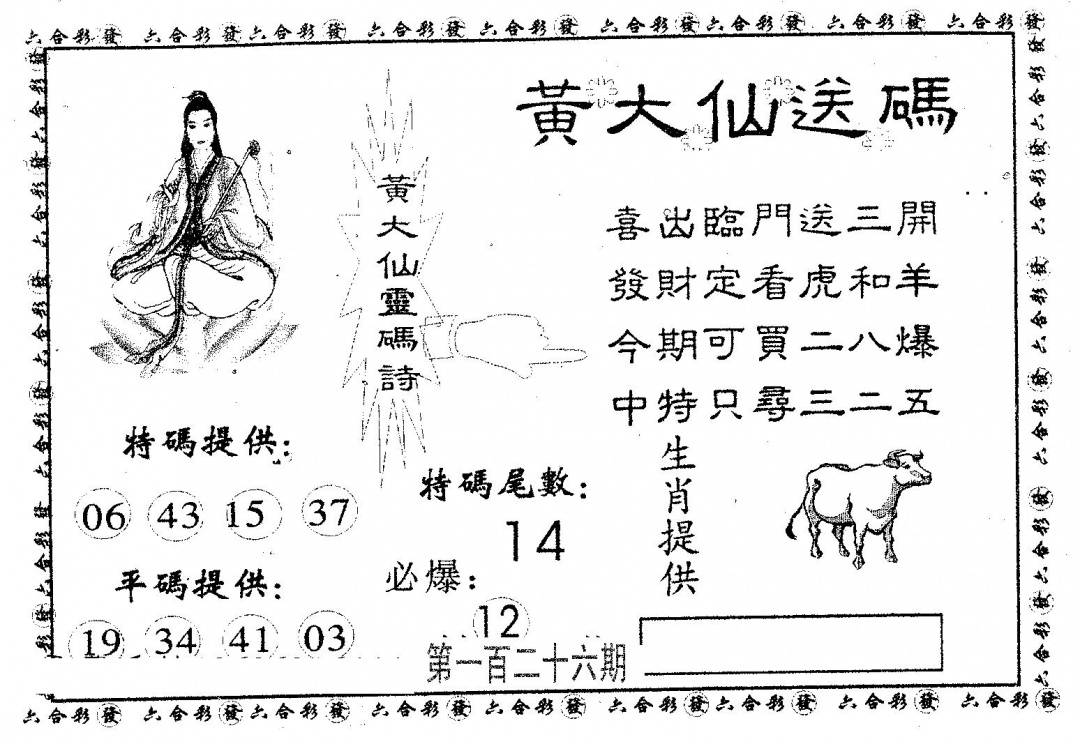 六合彩發 六合彩發六合彩發 六合彩發六合彩發 六合彩發六合彩發 六合彩發 六合彩發
黃大仙送碼
黃大仙靈碼詩
喜出臨門送三開
發財定看虎和羊
今期可買二八爆
中特只尋三二五
特碼提供:
06 43 15 37
特碼尾數:
14
生肖提供
平碼提供:
19 34 41 03
必爆:
12
第一百二十六期
六合彩發 六合彩發六合彩發 六合彩發六合彩發 六合彩發六合彩發 六合彩發 六合彩發